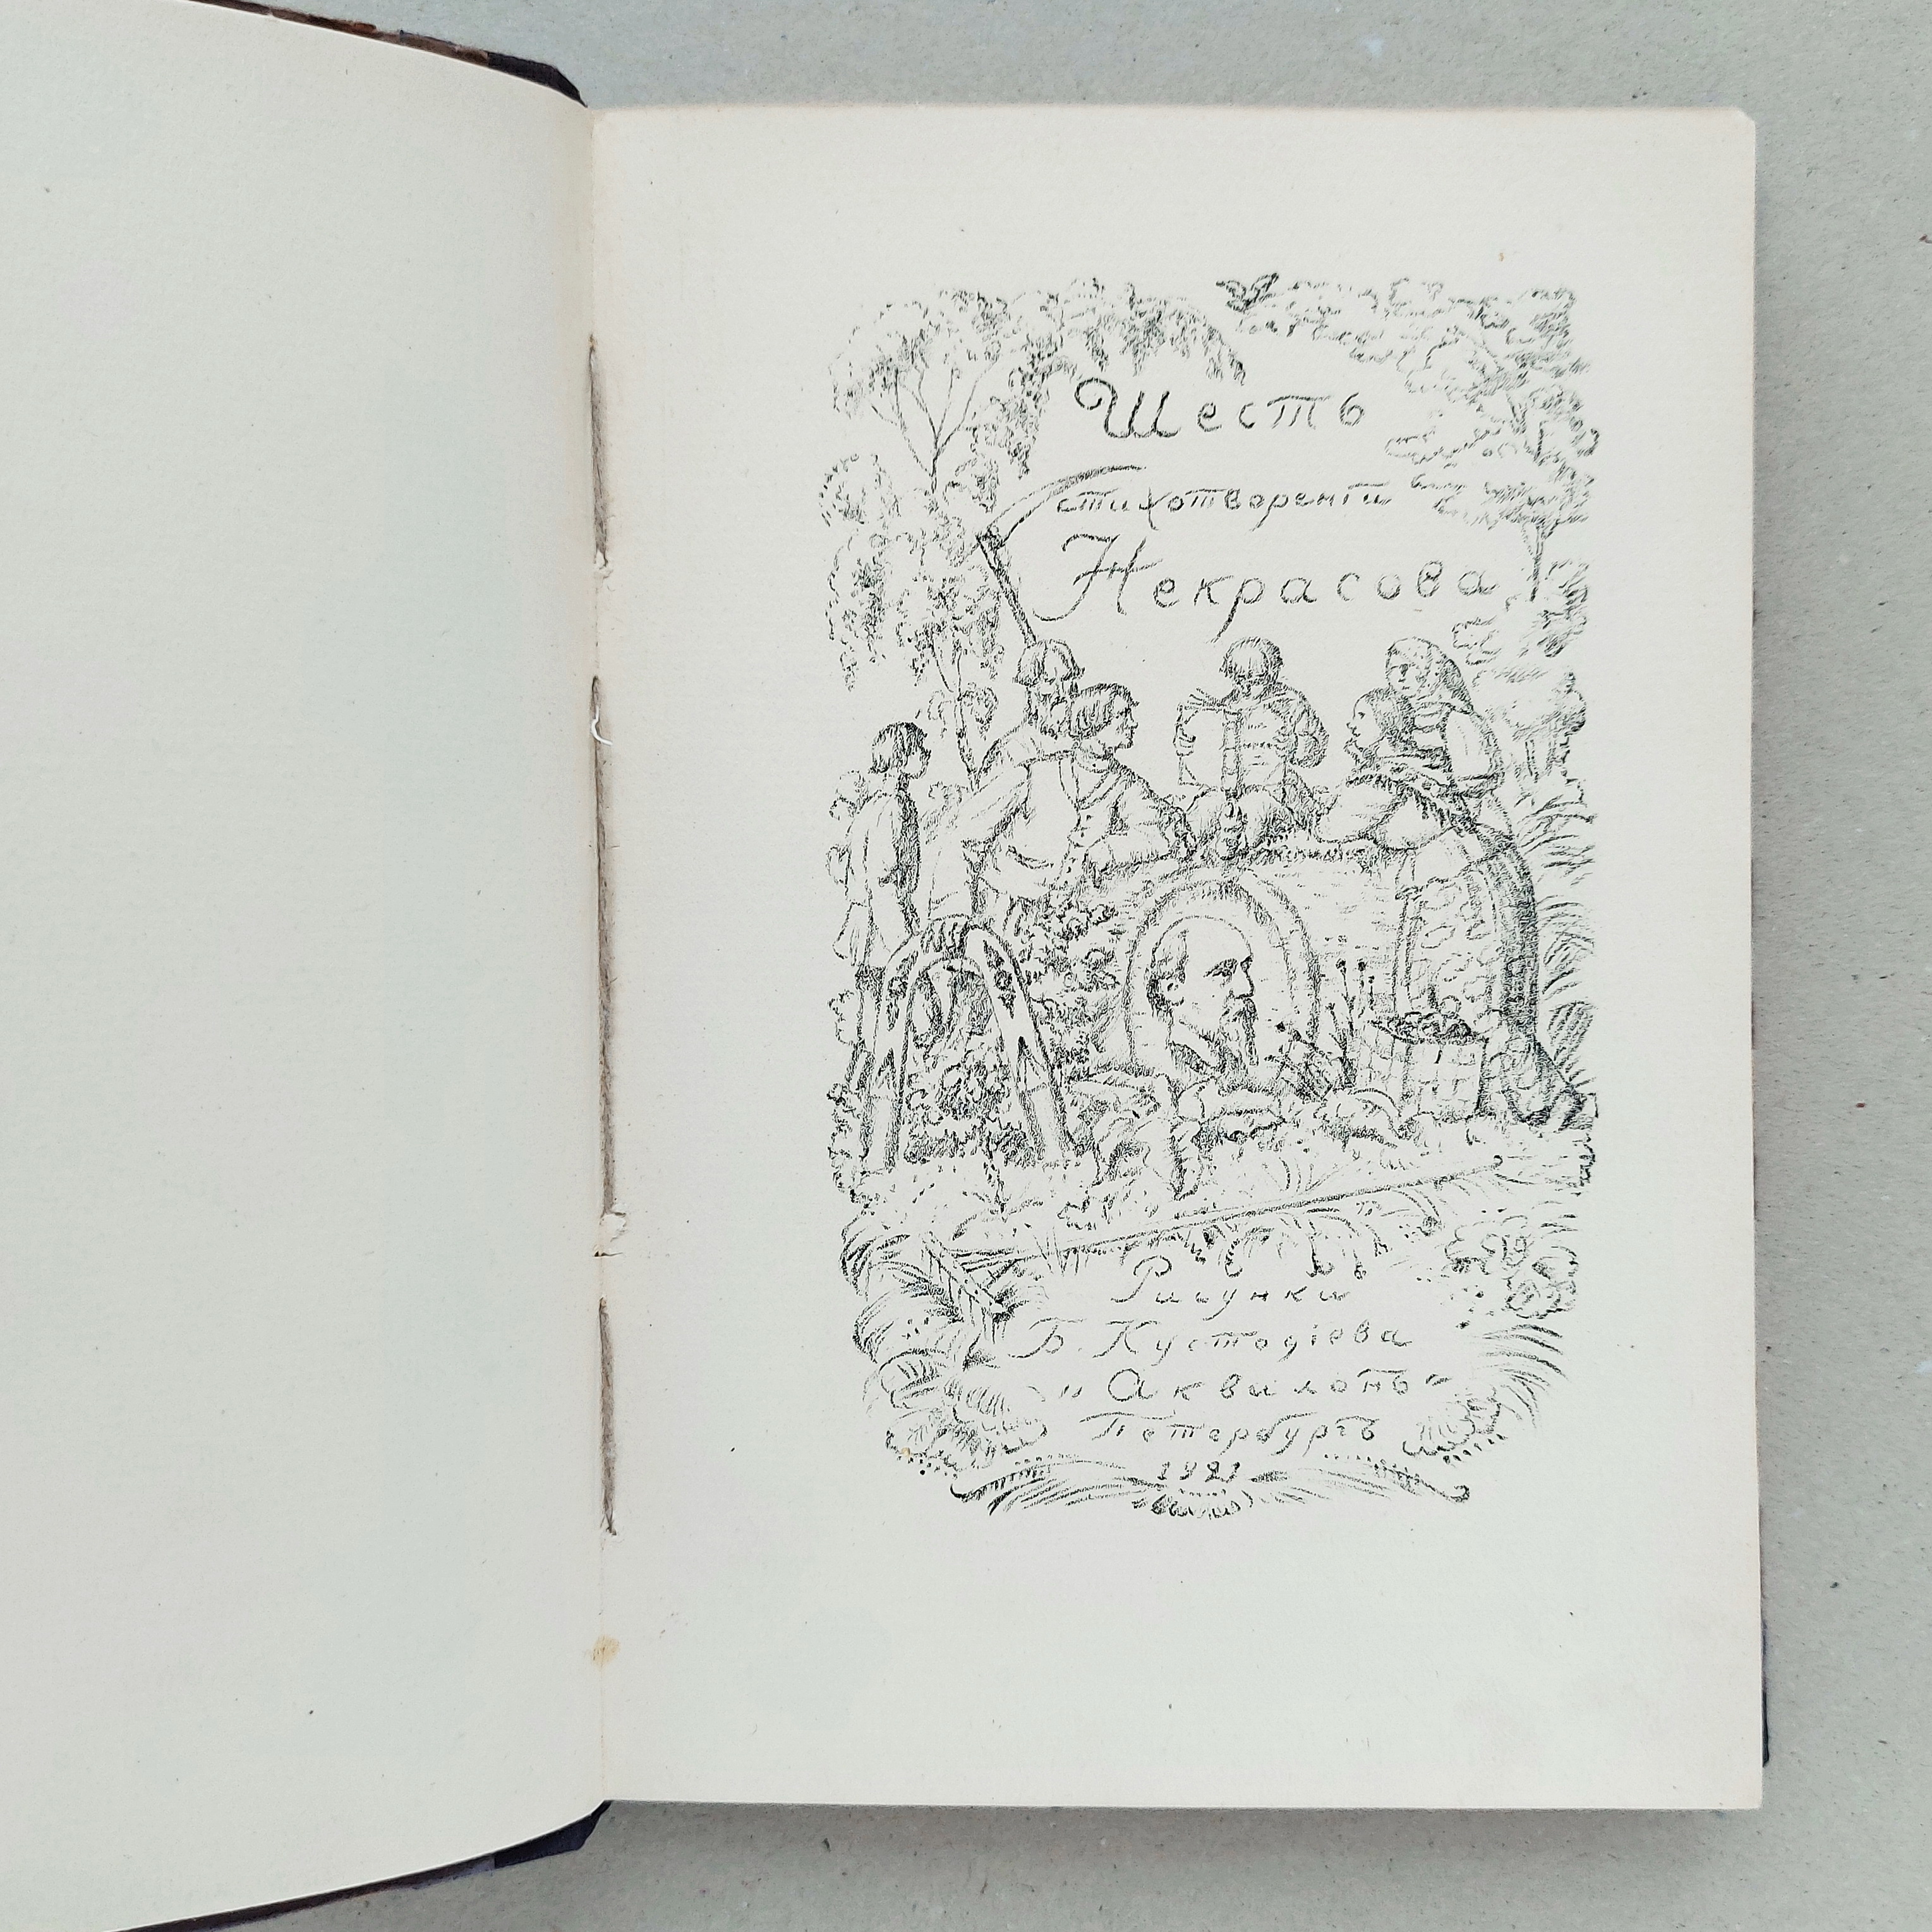 Шесть
стихотворенiй
Некрасова
Рисунки
Б. Кустодiева
„Аквилонъ"
Петербургъ
1921